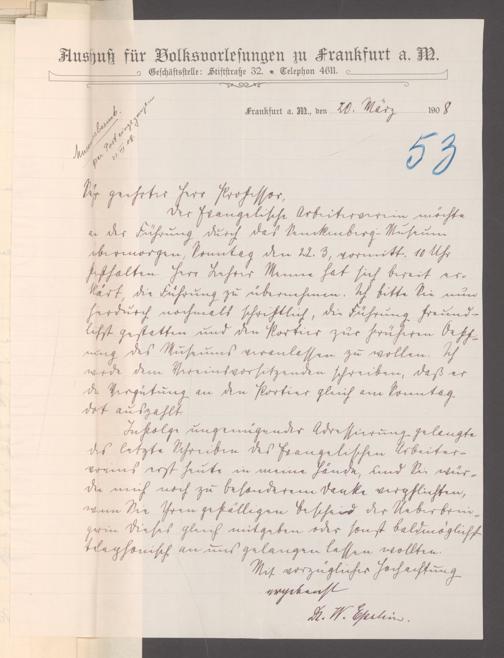 Ausschuß für Volksvorlesungen zu Frankfurt a. M.
Geschäftsstelle: Stiftstraße 32. • Telephon 4611.
Frankfurt a. M., den 20. März 1908
53
Sehr geehrter Herr Professor,
Der Evangelische Arbeiterverein möchte
an der Führung durch das Senckenberg-Museum
übermorgen, Sonntag den 22. 3, vormitt. 10 Uhr
festhalten. Herr Lehrer Menne hat sich bereit er-
klärt, die Führung zu übernehmen. Ich bitte Sie nun
hierdurch nochmals schriftlich, die Führung freund-
lichst gestatten und den Portier zur früheren Oeff-
nung des Museums veranlassen zu wollen. Ich
werde dem Vereinsvorsitzenden schreiben, daß er
die Vergütung an den Portier gleich am Sonntag
dort auszahlt.
Infolge ungenügender Adressierung gelangte
das letzte Schreiben des Evangelischen Arbeiter-
vereins erst heute in meine Hände, und Sie wür-
den mich noch zu besonderem Danke verpflichten,
wenn Sie Ihren gefälligen Bescheid der Ueberbrin-
gerin dieses gleich mitgeben oder sonst baldmöglichst
telephonisch an uns gelangen lassen wollten.
Mit vorzüglicher Hochachtung
ergebenst
Dr. W. Epstein.